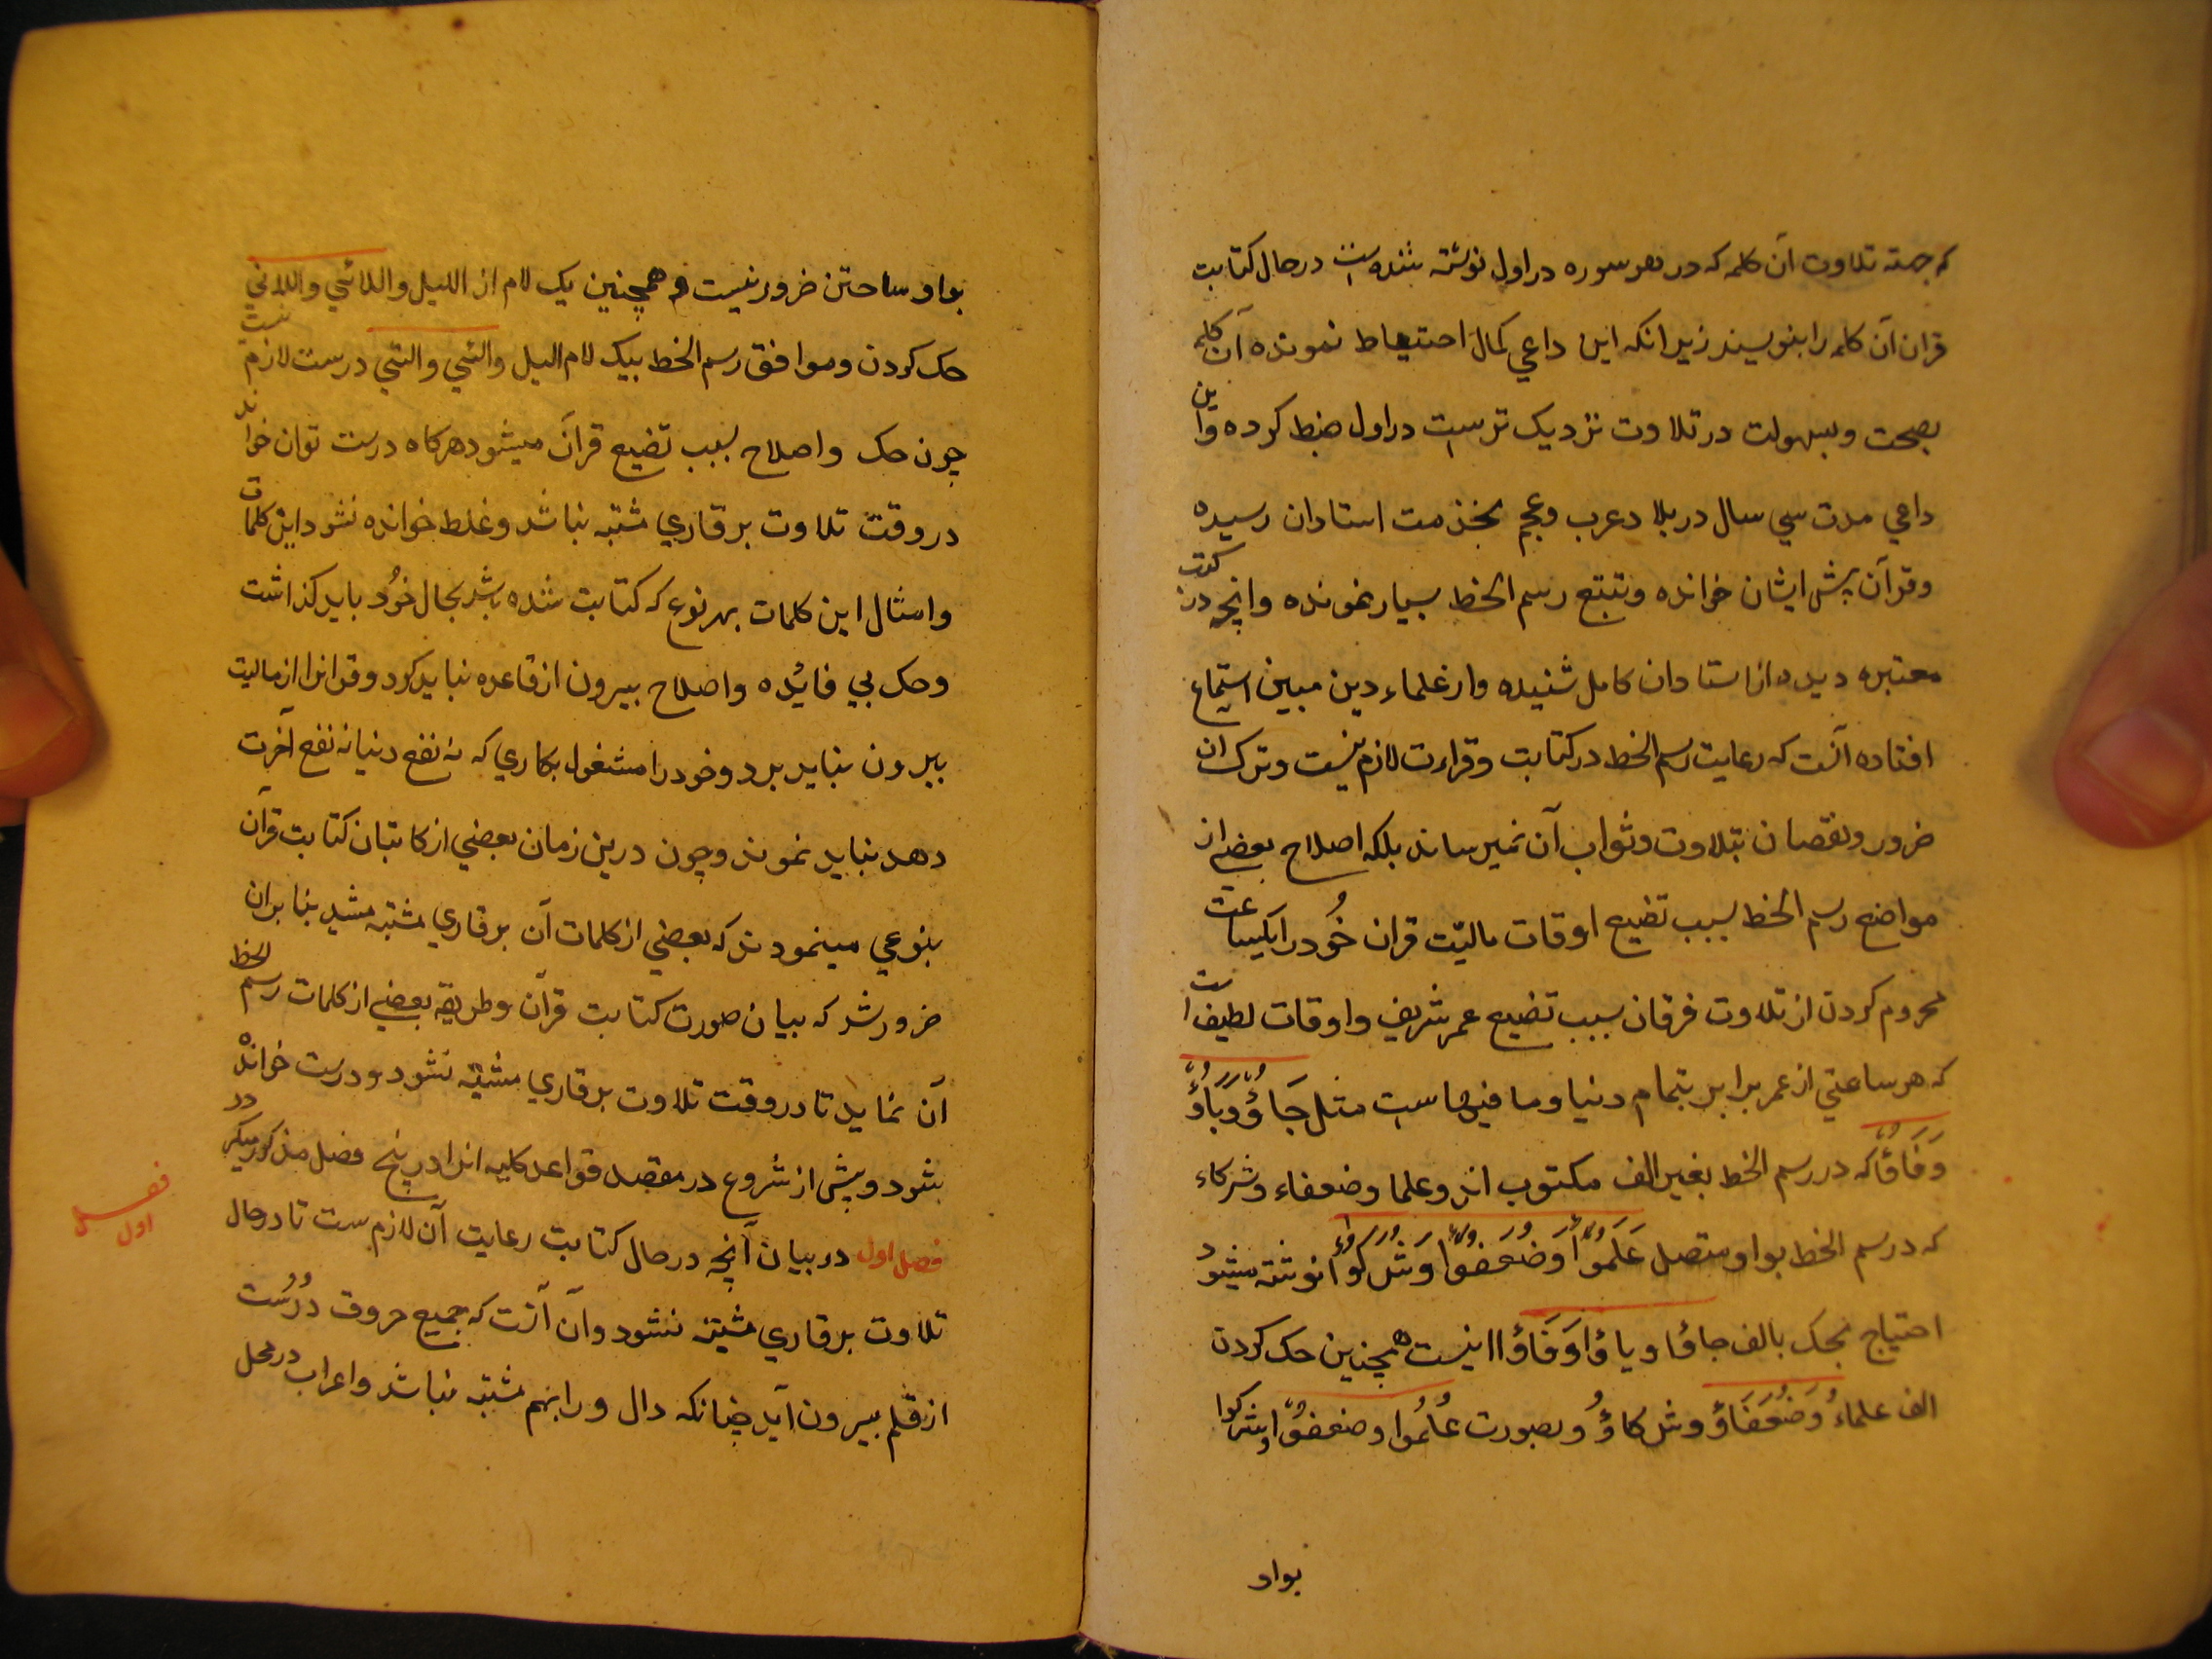 که جهته تلاوت آن کلمه که در هر سوره در اول نوشته شده است در حال کتابت
قران آن کلمه را بنویسند زیرانکه این داعي کمال احتیاط نموده آن کلمه
بصحت وبسهولت در تلاوت نزدیک ترست در اول ضبط کرده واین
داعي مدت سي سال در بلاد عرب وعجم بخذمت استادان رسیده
وقرآن پیش ایشان خوانده وتتبع رسم الخط بسیار نموده وانچه در کتب
معتبره دیده واز استادان کامل شنیده واز علماء دین مبین استماع
افتاده آنست که رعایت رسم الخط در کتابت وقراءت لازم نیست وترک ان
ضرور ونقصان بتلاوت وثواب آن نمیرساند بلکه اصلاح بعضي از
مواضع رسم الخط بسبب تضیع اوقات مالیّت قران خُود را یکساعت
محروم کردن از تلاوت فرقان بسبب تضیع عمر شریف واوقات لطیف است
که هر ساعتي از عمر برابر بتمام دنیا وما فیهاست مثل جَاؤُ وبَاؤُ
وَفَاؤُ که در رسم الخط بغیر الف مکتوب اند وعلما وضعفاء وشرکاء
که در رسم الخط بواو متصل عَلَمَوا وَضُعَفَوا وَشُرَکَوا نوشته میشود
احتیاج بحک بالف جاؤا وباؤا وَفَاؤاا نیست همچنین حک کردن
الف علماءُ وَضُعَفَاؤُ وشرکاؤُ وبصورت عُلَمُوا وضعفوا وشرکوا
بواو
بواو ساحتن ضرور نیست وهمچنین یک لام از اللیل واللائي واللاتي
حک کردن وموافق رسم الخط بیک لام الیل والئي والتي درست لازم نیست
چون حک واصلاح بسبب تضیع قرآن میشود هرکاه درست توان خواند
در وقت تلاوت بر قاري مشتبه نباشد وغلط خوانده نشود این کلمات
وامثال این کلمات بهر نوع که کتابت شده باشد بحال خُود باید کذاشت
وحک بي فائده واصلاح بیرون از قاعده نباید کرد وقرانرا از مالیت
بیرون نباید برد وخود را مشغول بکاري که نه نفع دنیا نه نفع آخرت
دهد نباید نمود وچون درین زمان بعضي از کاتبان کتابت قرآن
بنوعي مینمودند که بعضي از کلمات آن بر قاري مشتبه میشد بنابران
ضرور شد که بیان صورت کتابت قرآن وطریقه بعضي از کلمات رسم الخط
آن نماید تا در وقت تلاوت بر قاري مشتبه نشود ودرست خوانده
شود وپیش از شروع در مقصد قواعد کلیه انرا در پنج فصل مذکور میکردد
فصل اول در بیان آنچه در حال کتابت رعایت آن لازم ست تا در حال
فصل
اول
تلاوت بر قاري مشتبه نشود وآن آنست که جمیع حروف دُرُست
از قلم بیرون آید چنانکه دال ورا بهم مشتبه نباشد واعراب در محل